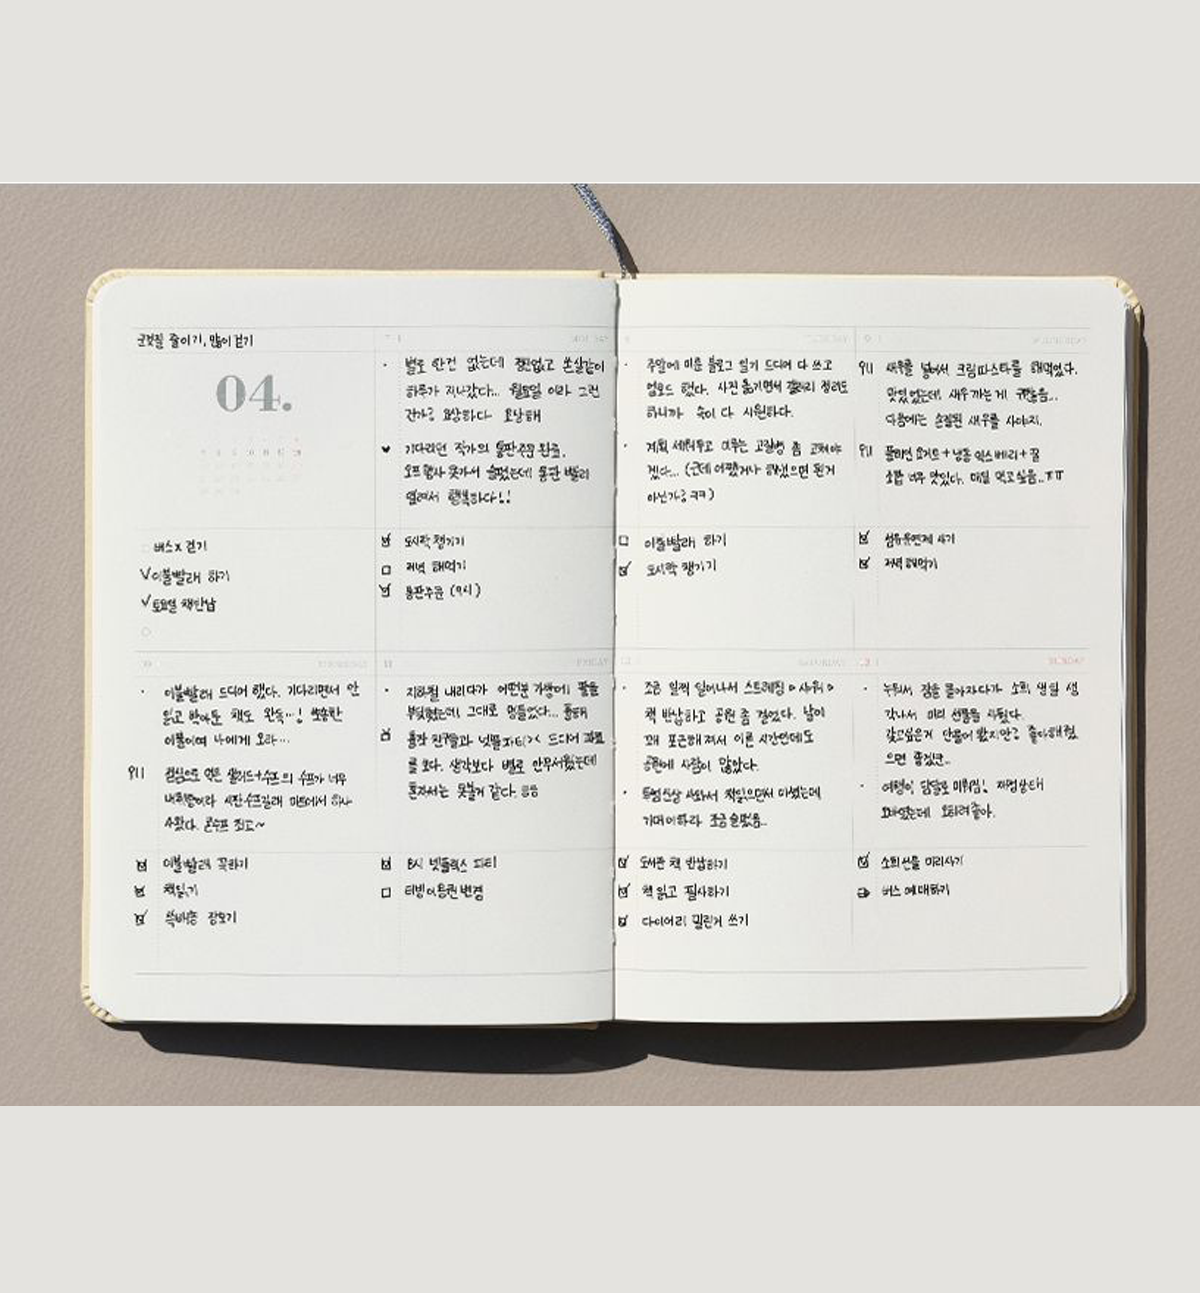 군것질 줄이기, 많이 걷기
04.
버스x 걷기
이불빨래 하기
토요일 책반납
별로 한건 없는데 정신없고 쏜살같이
하루가 지나갔다... 월요일 이라 그런
건가? 요상하다 요상해
기다리던 작가의 통판 주문 완료.
오프행사 못가서 슬펐는데 통판 빨리
열려서 행복하다!!
도시락 챙기기
저녁 해먹기
통판주문 (9시)
주말에 미룬 블로그 일기 드디어 다 쓰고
업로드 했다. 사진 옮기면서 갤러리 정리도
하니까 속이 다 시원하다.
계획 세워두고 미루는 고질병 좀 고쳐야
겠다... (근데 어쨌거나 해냈으면 된거
아닌가? ㅋㅋ)
이불빨래 하기
도시락 챙기기
새우를 넣어서 크림파스타를 해먹었다.
맛있었는데 새우 까는게 귀찮음...
다음에는 손질된 새우를 사야지.
플레인 요거트+냉동 믹스베리+꿀
조합 너무 맛있다. 매일 먹고싶음..ㅠㅠ
섬유유연제 사기
저녁 해먹기
THURSDAY
이불빨래 드디어 했다. 기다리면서 안
읽고 박아둔 책도 완독...! 뽀송한
이불이여 나에게 오라...
점심으로 먹은 샐러드+수프의 수프가 너무
내취향이라 시판 수프
사왔다. 콘수프 최고~
이불빨래 꼭하기
책읽기
쓱배송 장보기
11 FRIDAY
지하철 내리다가 어떤분 가방에 팔을
부딪혔는데 그대로 멍들었다...
친구들과 넷플파티>< 드디어
를 보다. 생각보다 별로 안무서웠는데
혼자서는 못볼거 같다.
8시 넷플릭스 파티
티빙 이용권 변경
SATURDAY
조금 일찍 일어나서 스트레칭 → 샤워 →
책 반납하고 공원 좀 걸었다. 날이
꽤 포근해져서 이른 시간인데도
공원에 사람이 많았다.
사와서 책읽으면서 마셨는데
기대이하라 조금 슬펐음..
도서관 책 반납하기
책 읽고 필사하기
다이어리 밀린거 쓰기
SUNDAY
누워서 잠을 몰아자다가 소희 생일 생
각나서 미리 선물을 사뒀다.
갖고싶은거 안물어 봤지만? 좋아해 줬
으면 좋겠군..
여행이 담달로 미뤄짐! 재정상태
오바였는데 오히려 좋아.
소희선물 미리사기
버스 예매하기